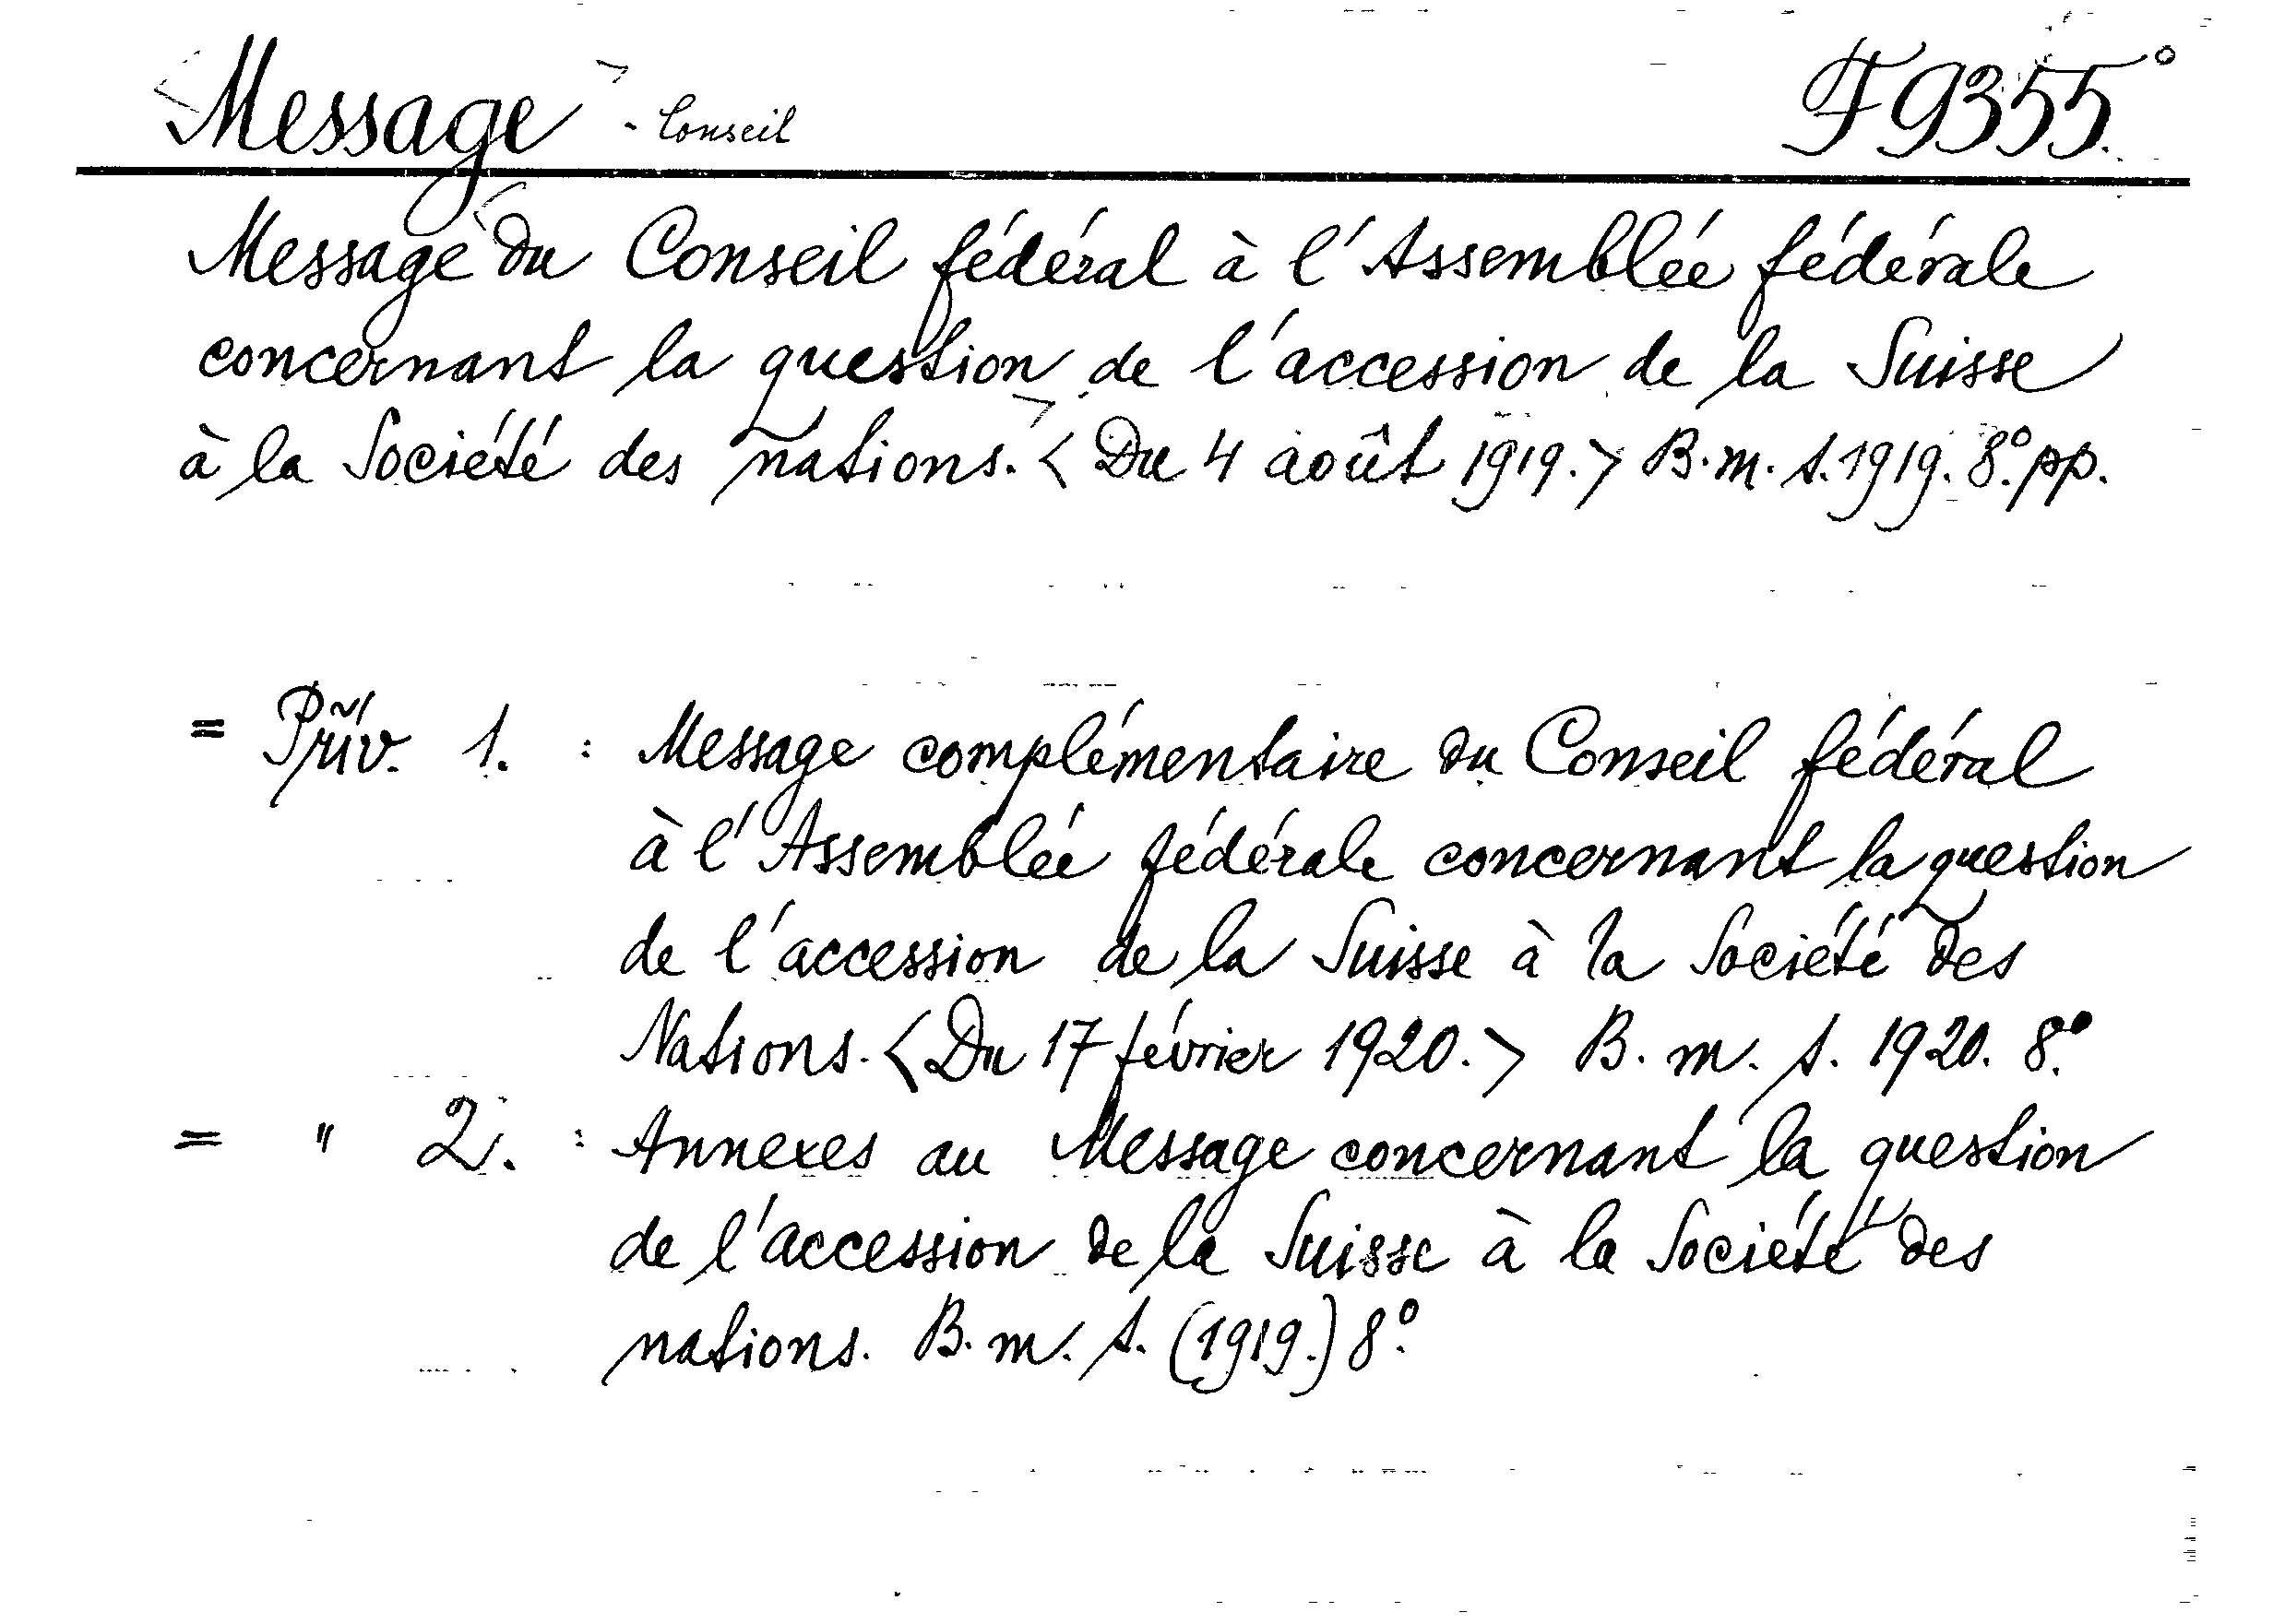 Message - Conseil F 9355.°
Message du Conseil fédéral à l'Assemblée fédérale
concernant la question de l'accession de la Suisse
à la Société des nations. < Du 4 août 1919. > B. m. s. 1919. 8°. pp.
= Priv. 1. : Message complémentaire du Conseil fédéral
à l'Assemblée fédérale concernant la question
de l'accession de la Suisse à la Société des
Nations. < Du 17 février 1920. > B. m. s. 1920. 8°.
= " 2. : Annexes au Message concernant la question
de l'accession de la Suisse à la Société des
nations. B. m. s. (1919.) 8°.